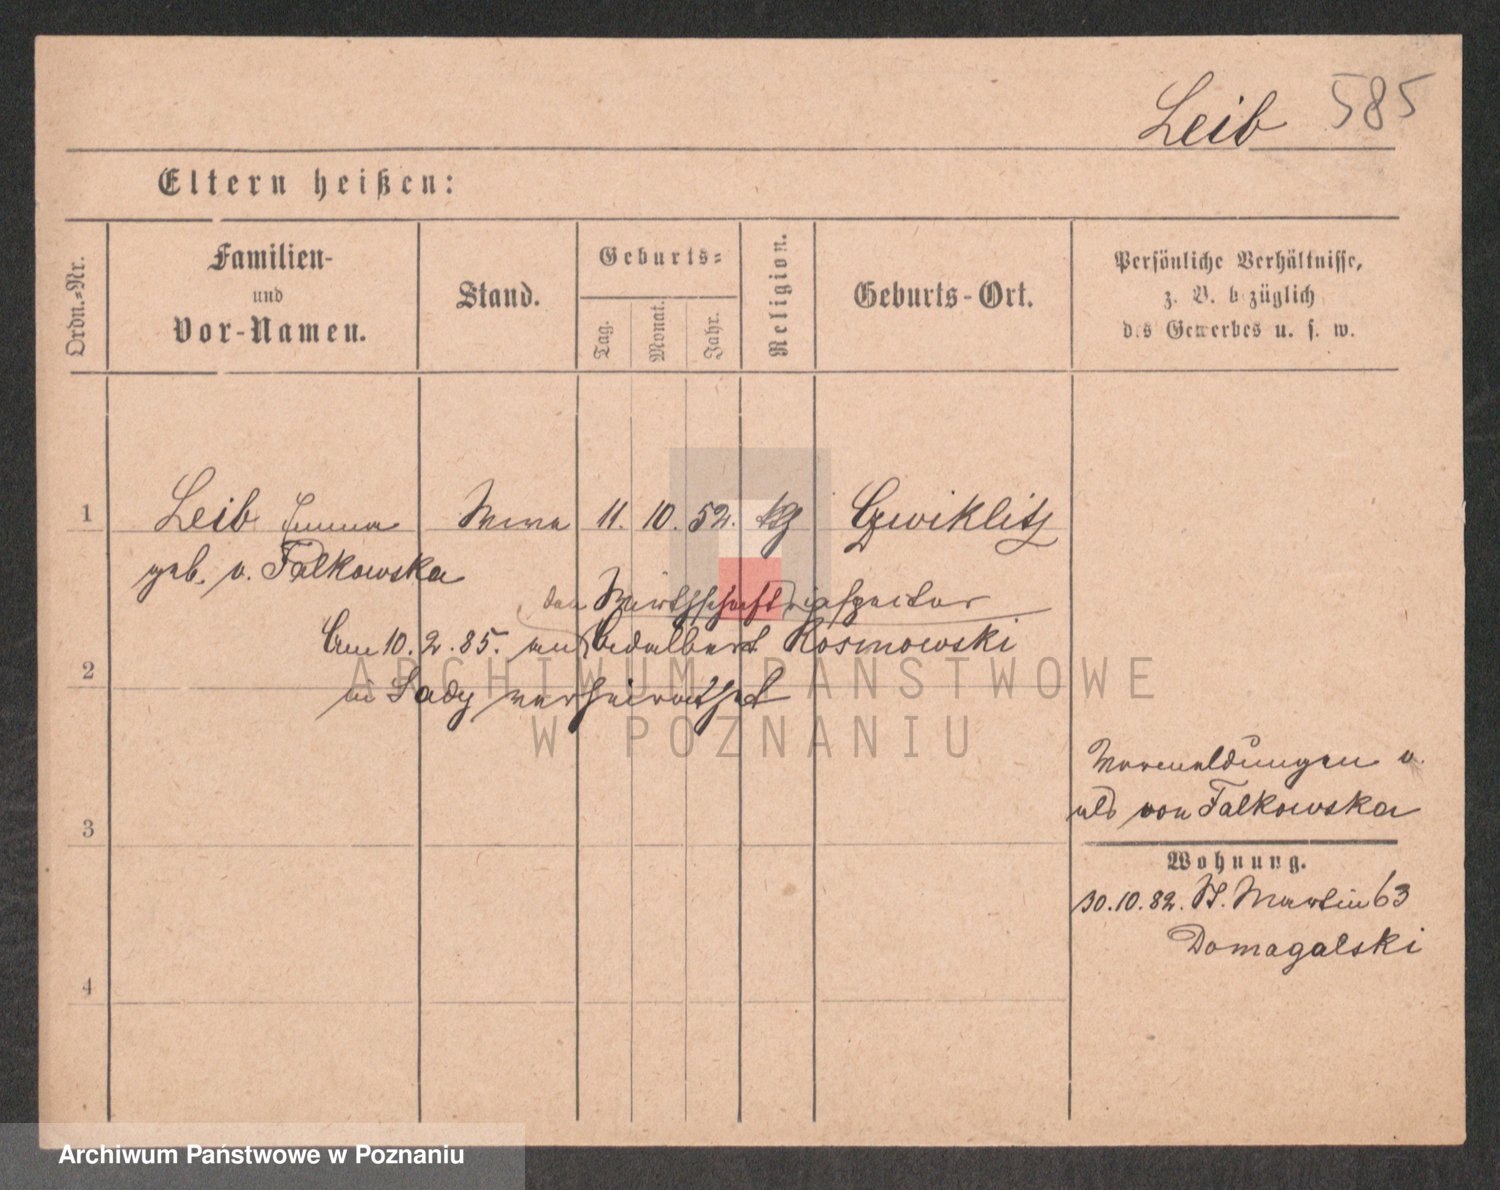 Leib 585
Eltern heißen:
Ordn.-Nr.
Familien-
und
Vor-Namen.
Stand.
Geburts-
Tag.
Monat.
Jahr.
Religion.
Geburts-Ort.
Persönliche Verhältnisse,
z. B. bezüglich
des Gewerbes u. s. w.
1 Leib Emma 11. 10. 52. Czwiklitz
geb. v. Falkowska
den Wirthschaftsinspector
Am 10. 2. 85. an Adalbert Kosmowski
2
in Sady verheirathet
ARCHIWUM PAŃSTWOWE
W POZNANIU
als von Falkowska
3
Wohnung.
30. 10. 82. St. Martin 63
Domagalski
4
Archiwum Państwowe w Poznaniu